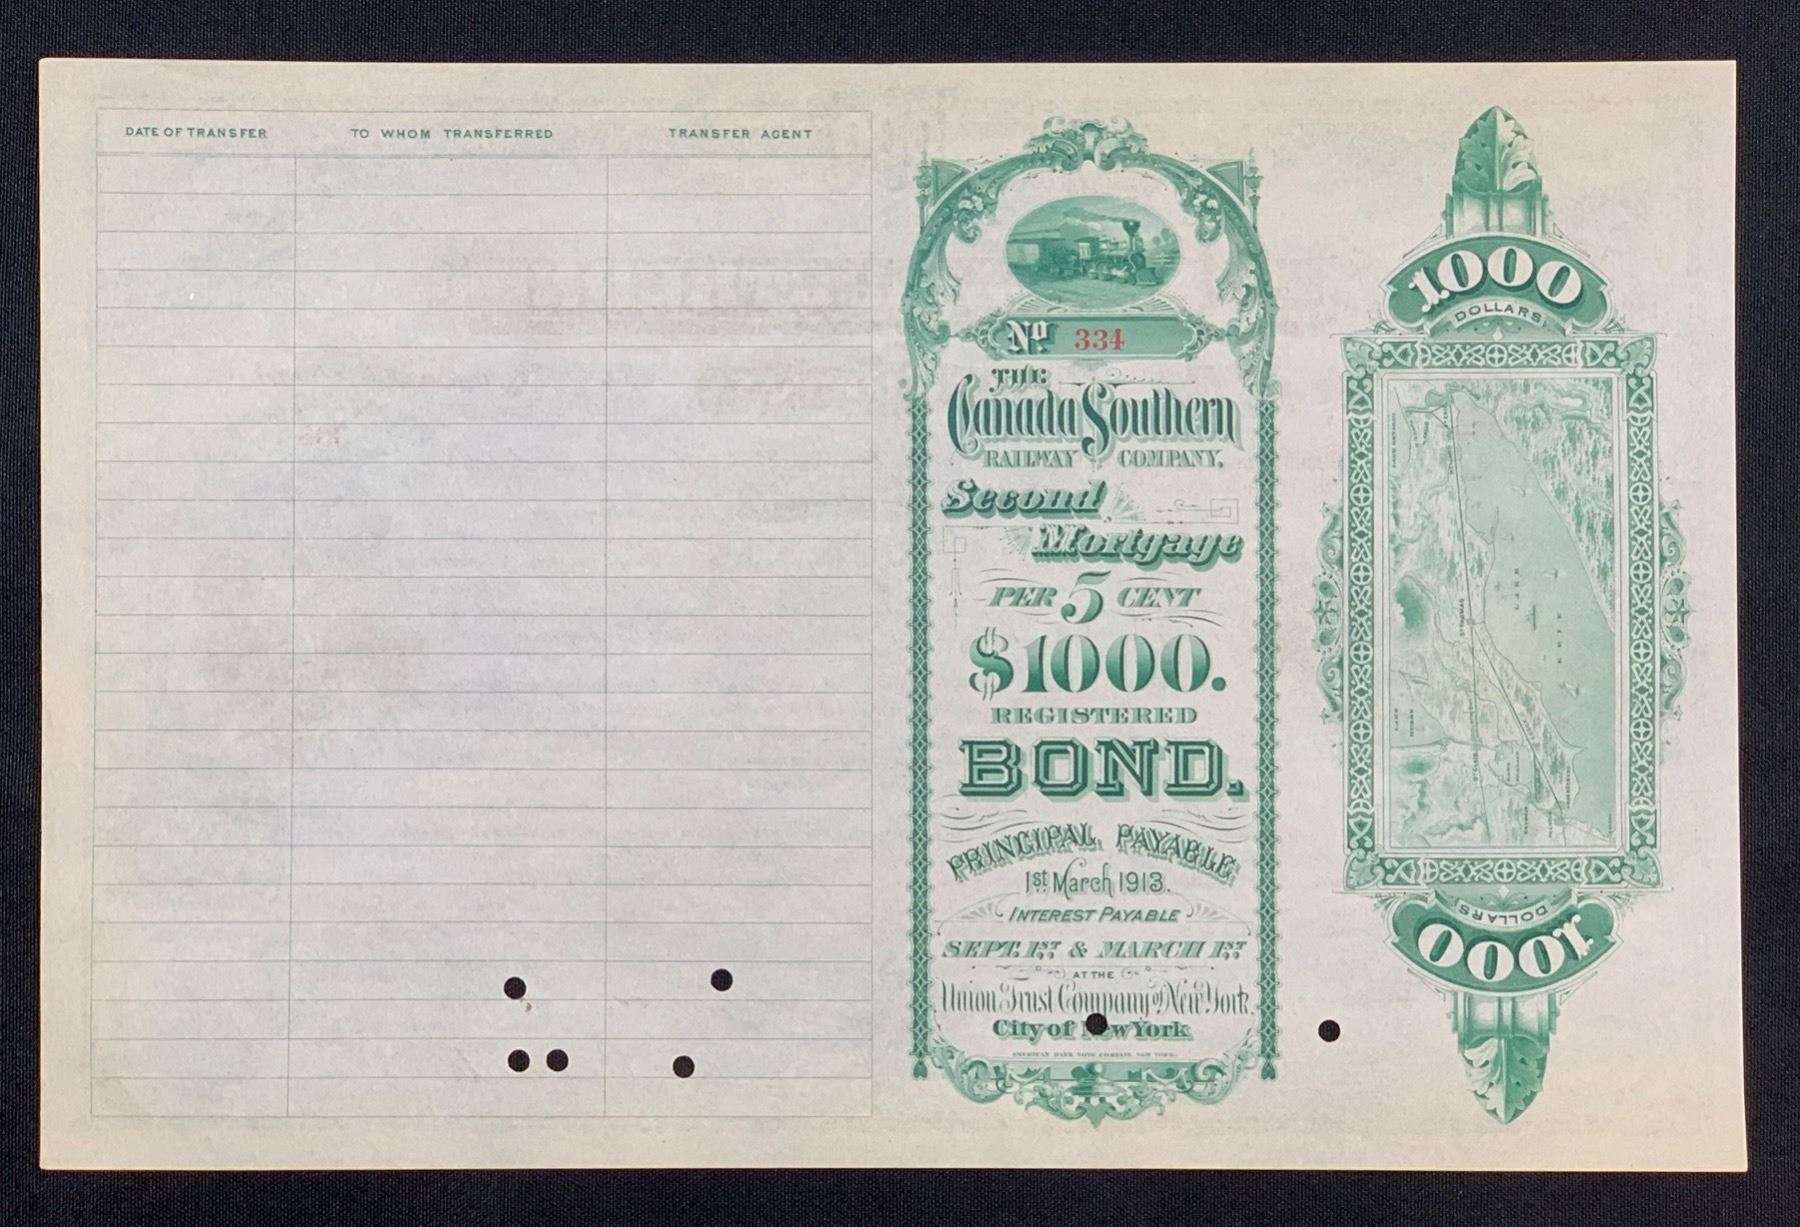 DATE OF TRANSFER TO WHOM TRANSFERRED TRANSFER AGENT
No 334
THE
Canada Southern
RAILWAY COMPANY,
Second
Mortgage
PER 5 CENT
$1000.
REGISTERED
BOND.
PRINCIPAL PAYABLE
1st March 1913.
INTEREST PAYABLE
SEPT. 1ST & MARCH 1ST
AT THE
Union Trust Company of New York,
City of New York
AMERICAN BANK NOTE COMPANY, NEW YORK.
1000
DOLLARS
LAKE ERIE
ST THOMAS
LAKE
DOLLARS
1000